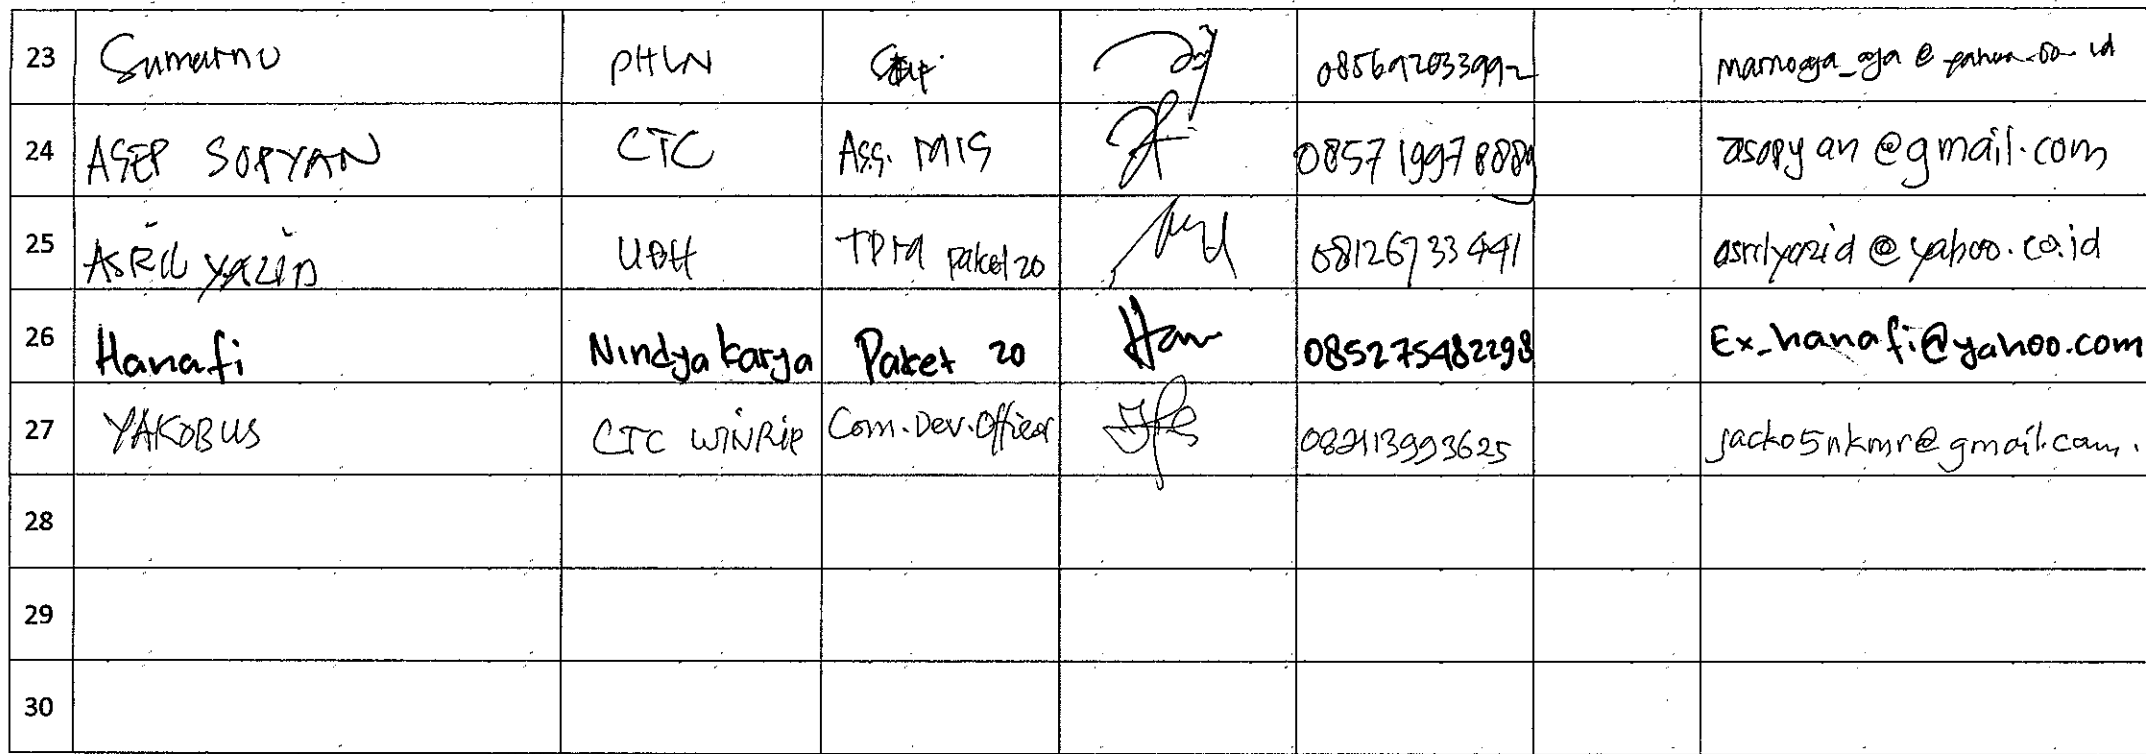 23 Sumarno PHLN 085692033992
24 ASEP SOPYAN CTC Ass. MIS 085719978889 asopyan@gmail.com
25 ASRIL YAZID UBH TPM paket 20 08126733441 asrilyazid@yahoo.co.id
26 Hanafi Nindya Karya Paket 20 Han 085275482298 Ex_hanafi@yahoo.com
27 YAKOBUS CTC WINRIP Com. Dev. Officer 082113993625 jacko5nkmr@gmail.com.
28
29
30